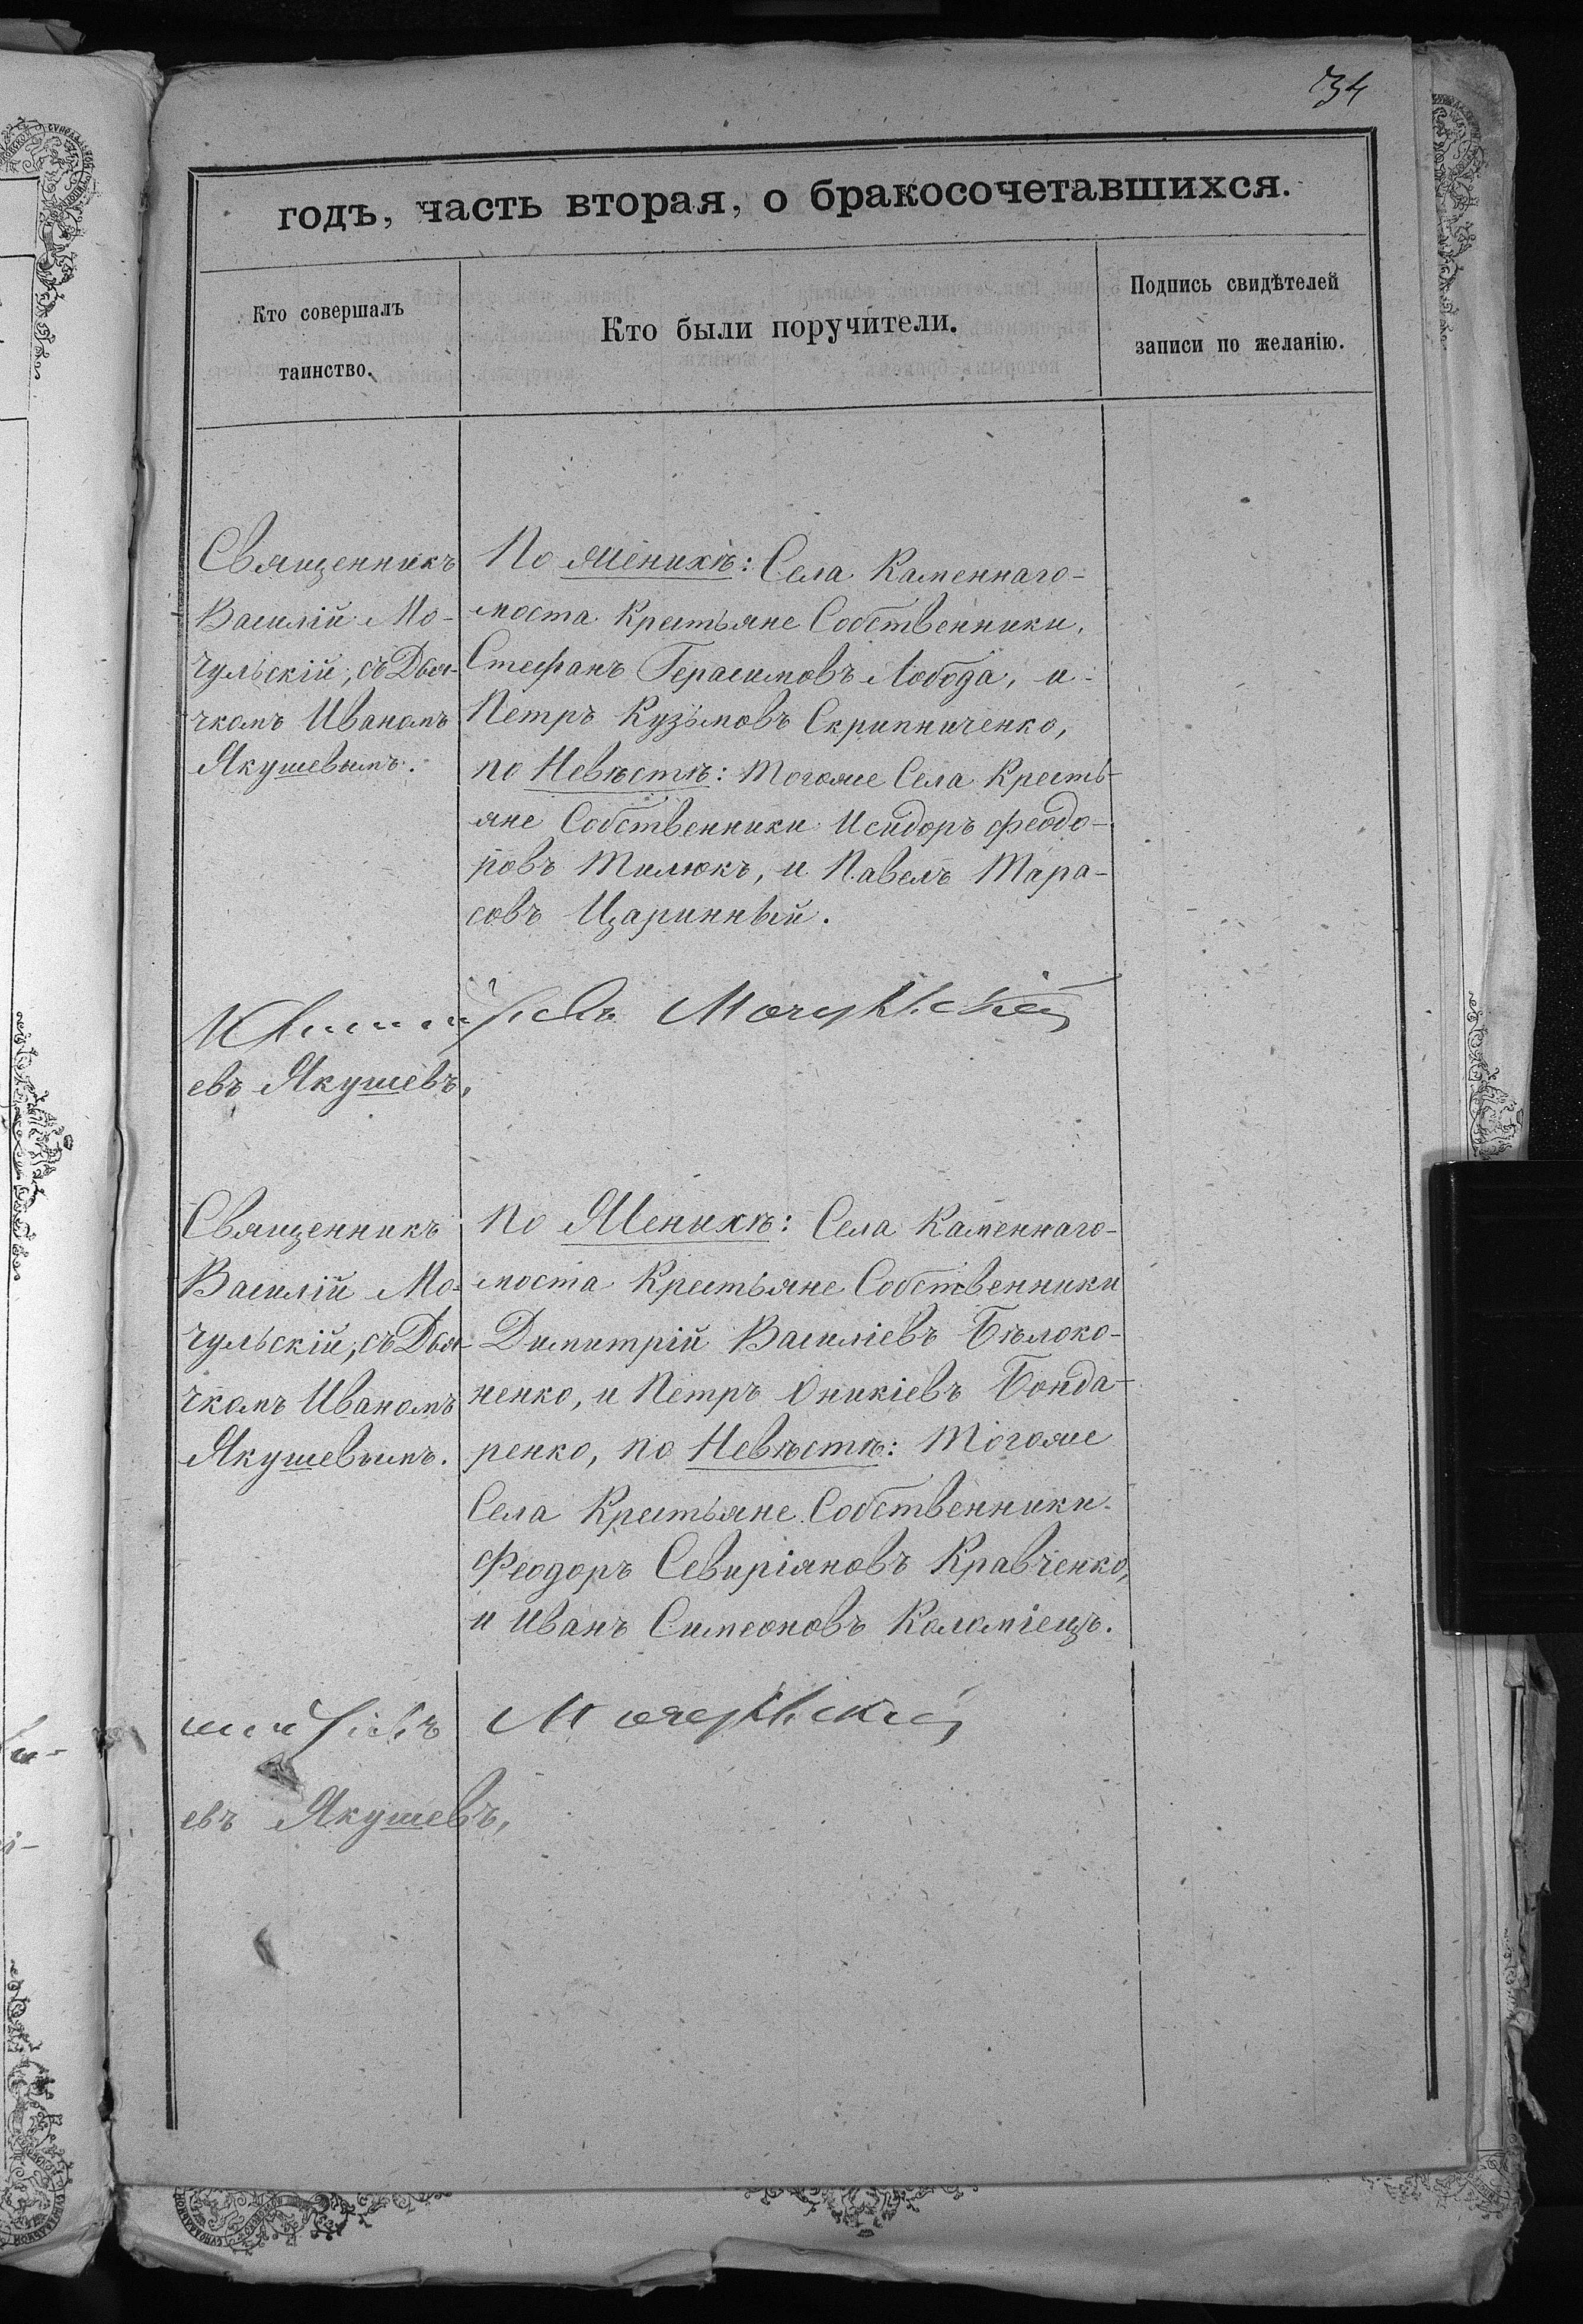 34
годъ, часть вторая, о бракосочетавшихся.
Кто совершалъ
таинство.
Кто были поручители.
Подпись свидѣтелей
записи по желанію.
Священникъ
Василій Мо-
чульскій, съ Дья-
чкомъ Иваномъ
Якушевымъ.
По Женихѣ: Села Каменнаго-
моста Крестьяне Собственники,
Стефанъ Герасимовъ Лобода, и
Петръ Кузьмовъ Скрипниченко,
по Невѣстѣ: Тогоже Села Кресть-
яне Собственники Исидоръ Феодо-
ровъ Тилюкъ, и Павелъ Тара-
совъ Царинный.
Мочульскій
евъ Якушевъ,
Священникъ
Василій Мо-
чульскій, съ Дья-
чкомъ Иваномъ
Якушевымъ.
По Женихѣ: Села Каменнаго-
моста Крестьяне Собственники
Димитрій Василіевъ Бѣлоко-
ненко, и Петръ Оникіевъ Бонда-
ренко, по Невѣстѣ: Тогоже
Села Крестьяне Собственники
Феодоръ Севиріяновъ Кравченко,
и Иванъ Симеоновъ Коломіецъ.
Мочульскій
евъ Якушевъ,